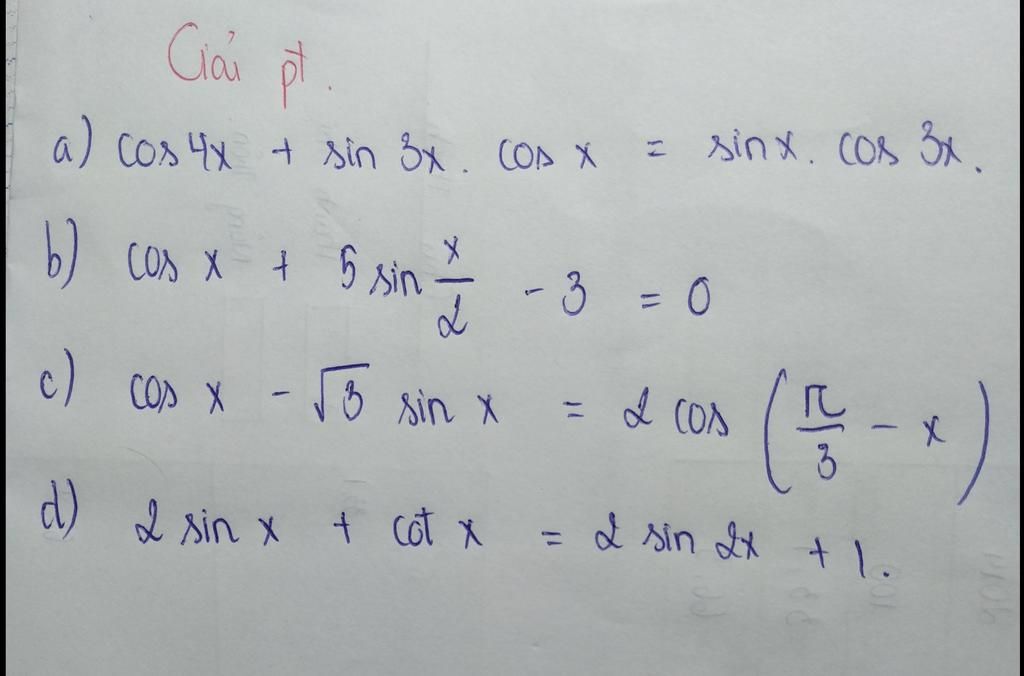 Giải pt.
a) cos 4x + sin 3x . cos x = sin x . cos 3x.
b) cos x + 5 sin x/2 - 3 = 0
c) cos x - √3 sin x = 2 cos (π/3 - x)
d) 2 sin x + cot x = 2 sin 2x + 1.